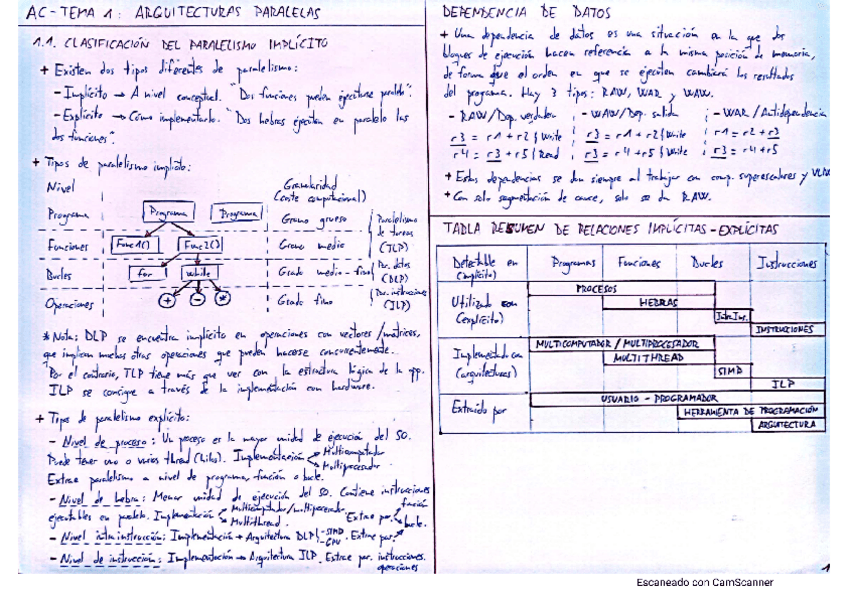 AC-TEMA 1: ARQUITECTURAS PARALELAS
1.1. CLASIFICACIÓN DEL PARALELISMO IMPLÍCITO
+ Existen dos tipos diferentes de paralelismo:
- Implícito → A nivel conceptual. "Dos funciones pueden ejecutarse paralelo".
- Explícito → Cómo implementarlo. "Dos hebras ejecutan en paralelo las
dos funciones".
+ Tipos de paralelismo implícito:
Nivel
Granularidad
(coste computacional)
Programa
Programa
Programa
Grano grueso
Paralelismo
de tareas
(TLP)
Funciones
Func1()
Func2()
Grano medio
Bucles
for
while
Grado medio-fino
Par. datos
(DLP)
Operaciones
+
-
*
Grado fino
Par. instrucciones
(ILP)
* Nota: DLP se encuentra implícito en operaciones con vectores/matrices,
que implican muchas otras operaciones que pueden hacerse concurrentemente.
Por el contrario, TLP tiene más que ver con la estructura lógica de la app.
ILP se consigue a través de la implementación con hardware.
+ Tipos de paralelismo explícito:
- Nivel de proceso: Un proceso es la mayor unidad de ejecución del SO.
Puede tener uno o varios thread (hilo). Implementación
Multicomputador
Multiprocesador
Extrae paralelismo a nivel de programa, función o bucle.
- Nivel de hebra: Menor unidad de ejecución del SO. Contiene instrucciones
ejecutables en paralelo. Implementación
Multicomputador/multiprocesador
Multithread.
Extrae par.
función
bucle.
- Nivel intrainstrucción: Implementación → Arquitectura DLP
-SIMD
-GPU
. Extrae par.
- Nivel de instrucción: Implementación → Arquitectura ILP. Extrae par. instrucciones.
operaciones
DEPENDENCIA DE DATOS
+ Una dependencia de datos es una situación en la que dos
bloques de ejecución hacen referencia a la misma posición de memoria,
de forma que el orden en que se ejecuten cambiará los resultados
del programa. Hay 3 tipos: RAW, WAR y WAW.
- RAW/Dep. verdadera
- WAW/Dep. salida
- WAR/Antidependencia
r3 = r1 + r2 { Write
r3 = r1 + r2 { Write
r1 = r2 + r3
r4 = r3 + r5 { Read
r3 = r4 + r5 { Write
r3 = r4 + r5
+ Estas dependencias se dan siempre al trabajar en comp. superescalares y VLIW
+ Con solo segmentación de cauce, solo se da RAW.
TABLA RESUMEN DE RELACIONES IMPLÍCITAS-EXPLÍCITAS
Detectable en
(implícito)
Programas
Funciones
Bucles
Instrucciones
Utilizado con
(explícito)
PROCESOS
HEBRAS
Intr.Ins.
INSTRUCCIONES
Implementado con
(arquitecturas)
MULTICOMPUTADOR / MULTIPROCESADOR
MULTITHREAD
SIMD
ILP
Extraído por
USUARIO - PROGRAMADOR
HERRAMIENTA DE PROGRAMACIÓN
ARQUITECTURA
1
Escaneado con CamScanner